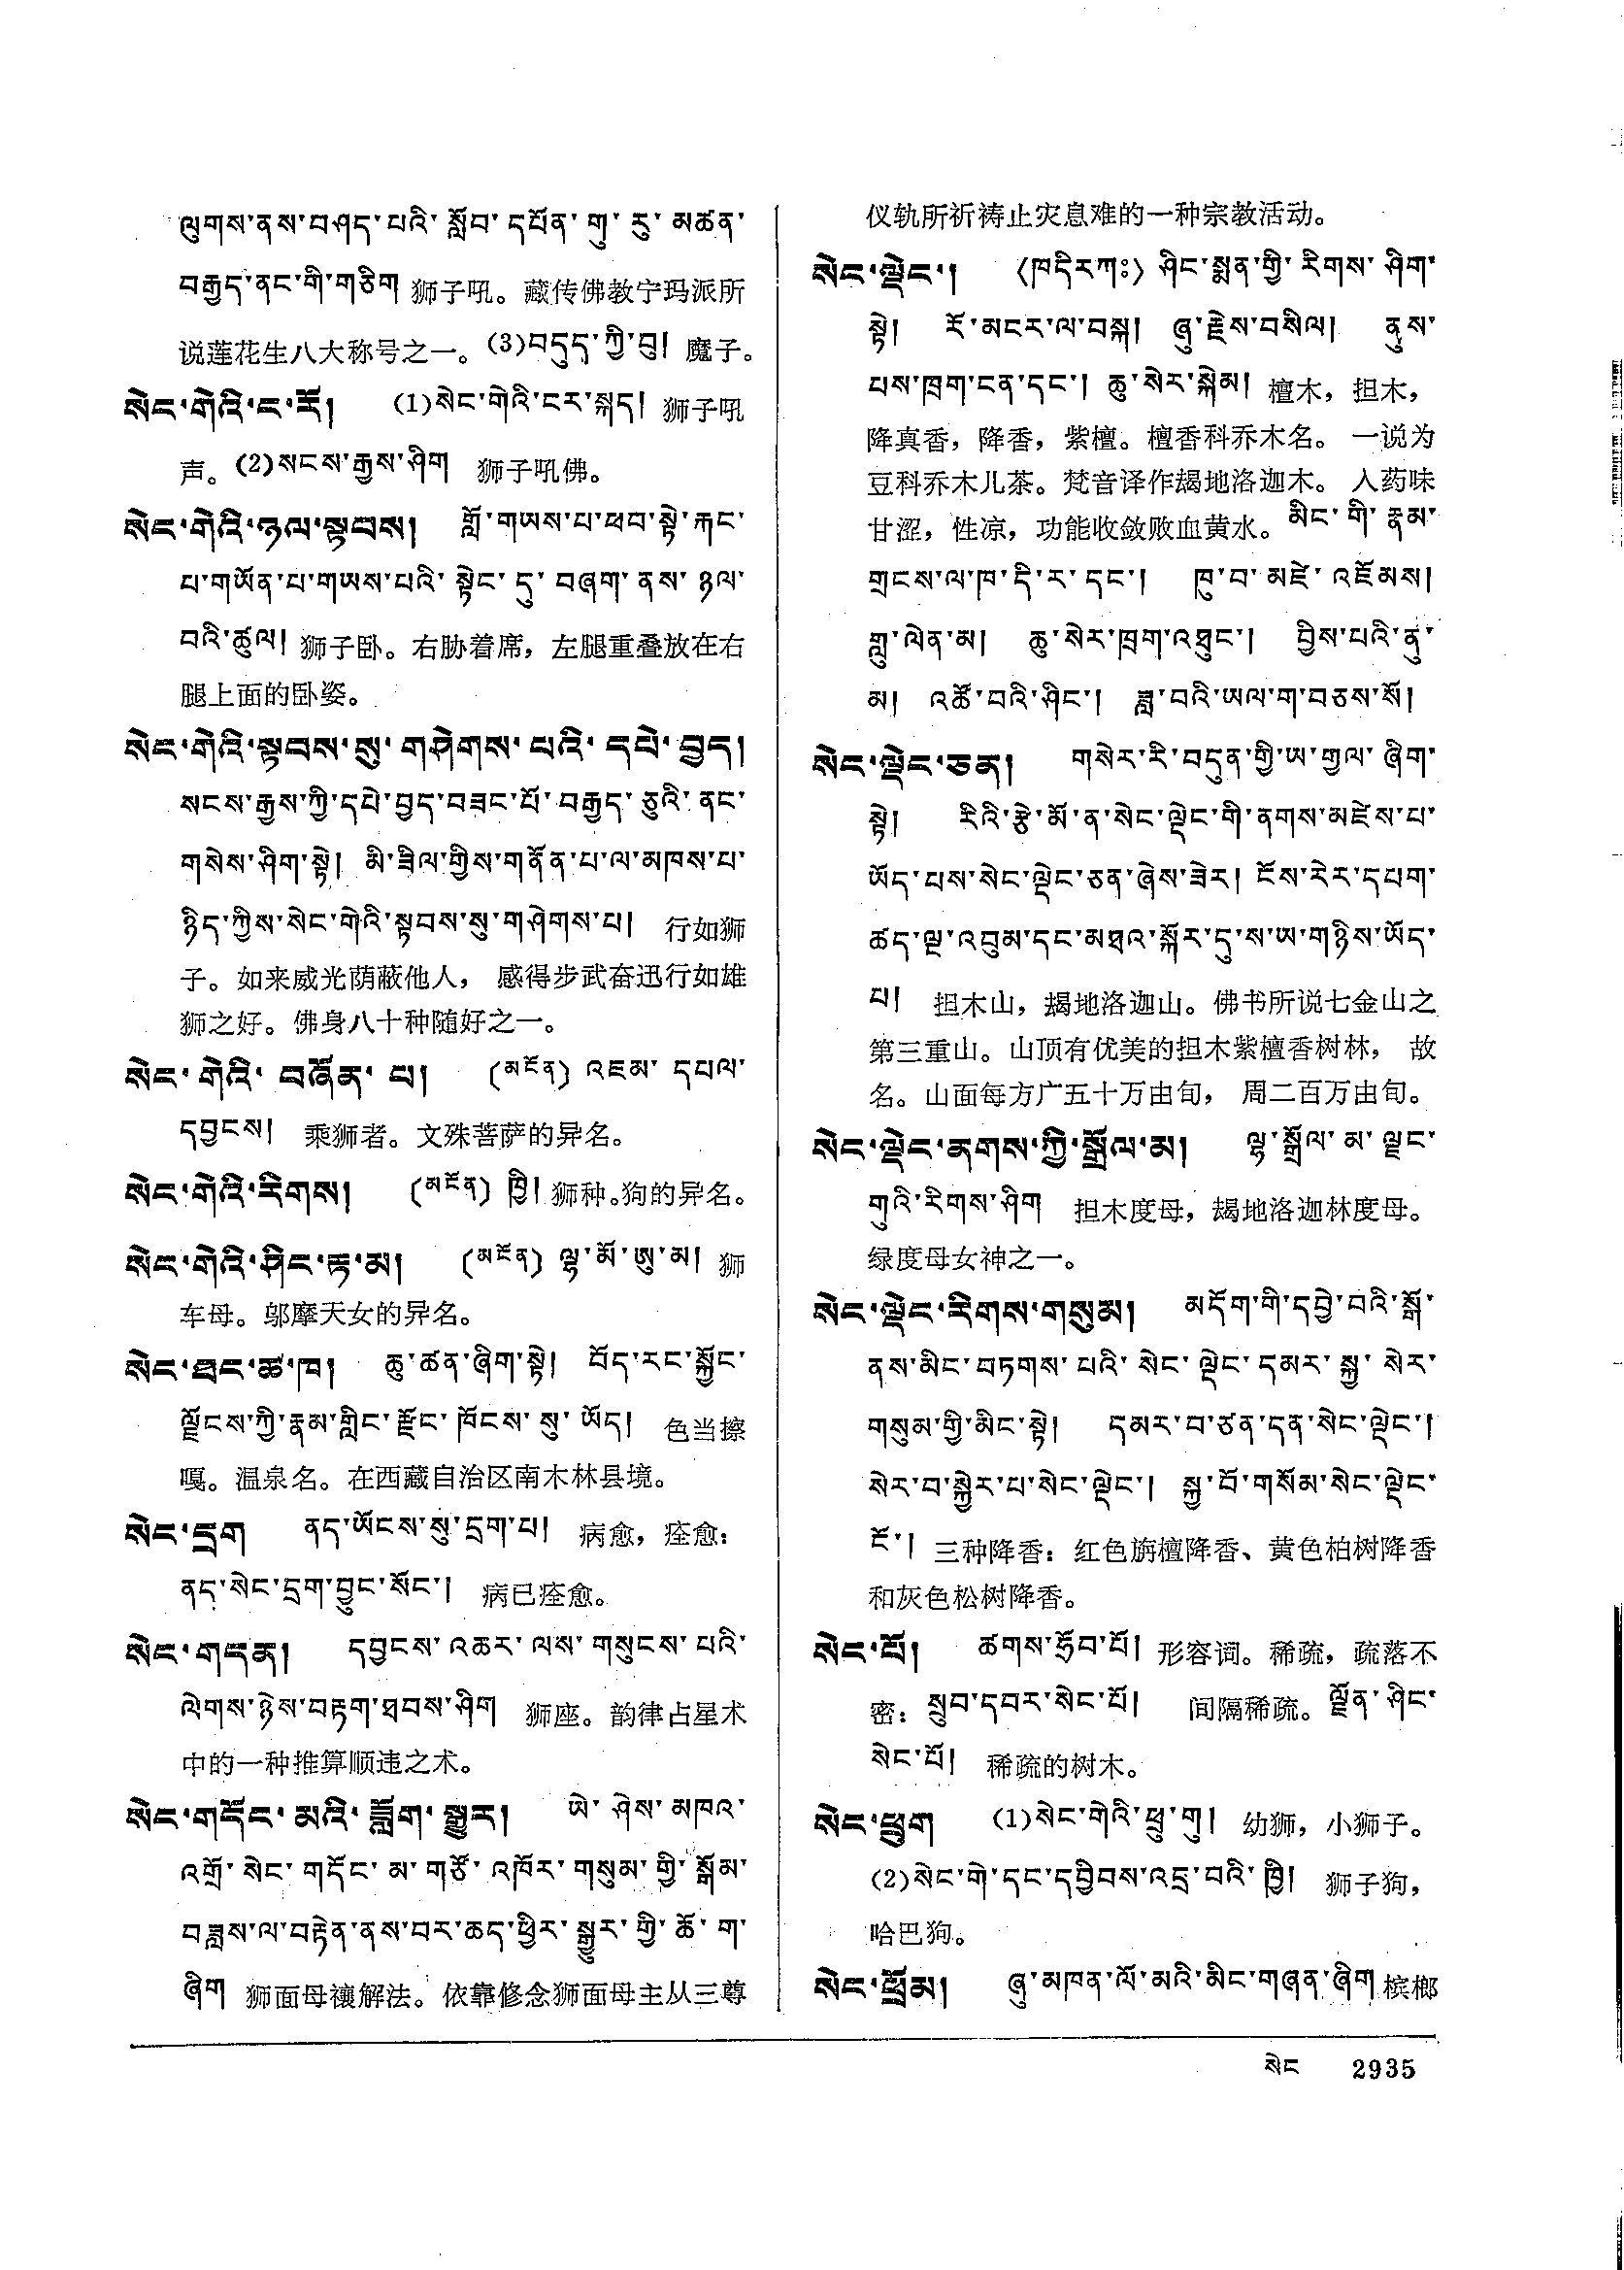 ལུགས་ནས་བཤད་པའི་སློབ་དཔོན་གུ་རུ་མཚན་
བརྒྱད་ནང་གི་གཅིག 狮子吼。藏传佛教宁玛派所
说莲花生八大称号之一。(3)བདུད་ཀྱི་བུ། 魔子。
སེང་གེའི་ང་རོ། (1)སེང་གེའི་ངར་སྐད། 狮子吼
声。(2)སངས་རྒྱས་ཤིག 狮子吼佛。
སེང་གེའི་ཉལ་སྟབས། གློ་གཡས་པ་ཕབ་སྟེ་རྐང་
པ་གཡོན་པ་གཡས་པའི་སྟེང་དུ་བཞག་ནས་ཉལ་
བའི་ཚུལ། 狮子卧。右胁着席，左腿重叠放在右
腿上面的卧姿。
སེང་གེའི་སྟབས་སུ་གཤེགས་པའི་དཔེ་བྱད།
སངས་རྒྱས་ཀྱི་དཔེ་བྱད་བཟང་པོ་བརྒྱད་ཅུའི་ནང་
གསེས་ཤིག་སྟེ། མི་ཟིལ་གྱིས་གནོན་པ་ལ་མཁས་པ་
ཉིད་ཀྱིས་སེང་གེའི་སྟབས་སུ་གཤེགས་པ། 行如狮
子。如来威光荫蔽他人，感得步武奋迅行如雄
狮之好。佛身八十种随好之一。
སེང་གེའི་བཞོན་པ། (མངོན) འཇམ་དཔལ་
དབྱངས། 乘狮者。文殊菩萨的异名。
སེང་གེའི་རིགས། (མངོན) ཁྱི། 狮种。狗的异名。
སེང་གེའི་ཤིང་རྟ་མ། (མངོན) ལྷ་མོ་ཨུ་མ། 狮
车母。邬摩天女的异名。
སེང་ཐང་ཚ་ཁ། ཆུ་ཚན་ཞིག་སྟེ། བོད་རང་སྐྱོང་
ལྗོངས་ཀྱི་རྣམ་གླིང་རྫོང་ཁོངས་སུ་ཡོད། 色当擦
嘎。温泉名。在西藏自治区南木林县境。
སེང་དྲག ནད་ཡོངས་སུ་དྲག་པ། 病愈，痊愈：
ནད་སེང་དྲག་བྱུང་སོང་། 病已痊愈。
སེང་གདན། དབྱངས་འཆར་ལས་གསུངས་པའི་
ལེགས་ཉེས་བརྟག་ཐབས་ཤིག 狮座。韵律占星术
中的一种推算顺违之术。
སེང་གདོང་མའི་ཟློག་སྒྱུར། ཡེ་ཤེས་མཁའ་
འགྲོ་སེང་གདོང་མ་གཙོ་འཁོར་གསུམ་གྱི་སྒོམ་
བཟླས་ལ་བརྟེན་ནས་བར་ཆད་ཕྱིར་སྒྱུར་གྱི་ཆོ་ག་
ཞིག 狮面母禳解法。依靠修念狮面母主从三尊
仪轨所祈祷止灾息难的一种宗教活动。
སེང་ལྡེང་། 〈ཁདིརཀཿ〉 ཤིང་སྨན་གྱི་རིགས་ཤིག་
སྟེ། རོ་མངར་ལ་བསྐ། ཞུ་རྗེས་བསིལ། ནུས་
པས་ཁྲག་ངན་དང་། ཆུ་སེར་སྐེམ། 檀木，担木，
降真香，降香，紫檀。檀香科乔木名。一说为
豆科乔木儿茶。梵音译作朅地洛迦木。入药味
甘涩，性凉，功能收敛败血黄水。མིང་གི་རྣམ་
གྲངས་ལ་ཁ་དི་ར་དང་། ཁུ་བ་མཛེ་འཇོམས།
གླུ་ལེན་མ། ཆུ་སེར་ཁྲག་འཐུང་། བྱིས་པའི་ནུ་
མ། འཚོ་བའི་ཤིང་། ཟླ་བའི་ཡལ་ག་བཅས་སོ།
སེང་ལྡེང་ཅན། གསེར་རི་བདུན་གྱི་ཨ་གྱལ་ཞིག་
སྟེ། རིའི་རྩེ་མོ་ན་སེང་ལྡེང་གི་ནགས་མཛེས་པ་
ཡོད་པས་སེང་ལྡེང་ཅན་ཞེས་ཟེར། ངོས་རེར་དཔག་
ཚད་ལྔ་འབུམ་དང་མཐའ་སྐོར་དུ་ས་ཡ་གཉིས་ཡོད་
པ། 担木山，朅地洛迦山。佛书所说七金山之
第三重山。山顶有优美的担木紫檀香树林，故
名。山面每方广五十万由旬，周二百万由旬。
སེང་ལྡེང་ནགས་ཀྱི་སྒྲོལ་མ། ལྷ་སྒྲོལ་མ་ལྗང་
གུའི་རིགས་ཤིག 担木度母，朅地洛迦林度母。
绿度母女神之一。
སེང་ལྡེང་རིགས་གསུམ། མདོག་གི་དབྱེ་བའི་སྒོ་
ནས་མིང་བཏགས་པའི་སེང་ལྡེང་དམར་སྐྱ་སེར་
གསུམ་གྱི་མིང་སྟེ། དམར་བ་ཙན་དན་སེང་ལྡེང་།
སེར་བ་སྐྱེར་པ་སེང་ལྡེང་། སྐྱ་བོ་གསོམ་སེང་ལྡེང་
ངོ་། 三种降香：红色旃檀降香、黄色柏树降香
和灰色松树降香。
སེང་པོ། ཚགས་ཧྲོབ་པོ། 形容词。稀疏，疏落不
密：སྲུབ་དབར་སེང་པོ། 间隔稀疏。ལྗོན་ཤིང་
སེང་པོ། 稀疏的树木。
སེང་ཕྲུག (1)སེང་གེའི་ཕྲུ་གུ། 幼狮，小狮子。
(2)སེང་གེ་དང་དབྱིབས་འདྲ་བའི་ཁྱི། 狮子狗，
哈巴狗。
སེང་ཕྲོམ། ཞུ་མཁན་ལོ་མའི་མིང་གཞན་ཞིག 槟榔
སེང 2935